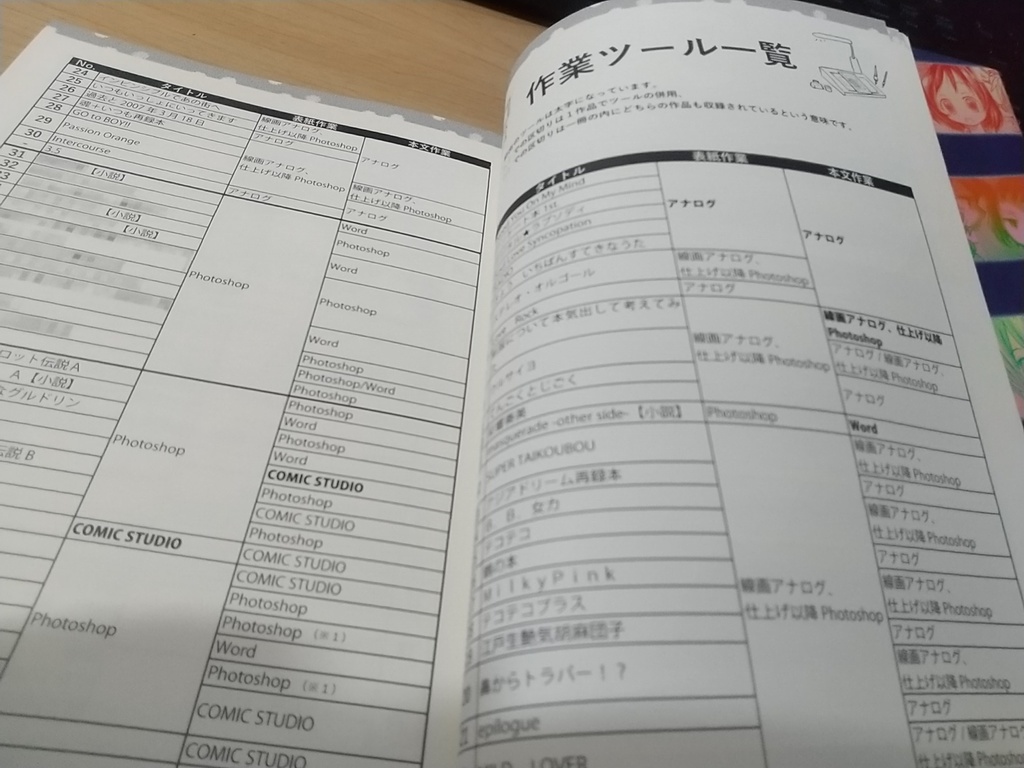 No.
タイトル
表紙作業
本文作業
24
インビジブルであの街へ
線画アナログ、
仕上げ以降 Photoshop
アナログ
25
いつもいっしょにいてきます
アナログ
26
過去と 2007 年 3 月 18 日
線画アナログ、
仕上げ以降 Photoshop
27
魂+いつも再録本
28
GO to BOY!!
線画アナログ、
仕上げ以降 Photoshop
29
Passion Orange
アナログ
30
Intercourse
アナログ
-
3.5
Word
31
【小説】
Photoshop
Photoshop
32
【小説】
Word
【小説】
Photoshop
Word
Photoshop
Photoshop/Word
Photoshop
ロット伝説 A
Photoshop
Photoshop
A【小説】
Word
なグルドリン
Photoshop
Word
伝説 B
COMIC STUDIO
Photoshop
COMIC STUDIO
Photoshop
COMIC STUDIO
COMIC STUDIO
Photoshop
COMIC STUDIO
Photoshop
Photoshop（※1）
Word
Photoshop（※1）
COMIC STUDIO
COMIC STUDIO
作業ツール一覧
ールは太字になっています。
の区切りは 1 作品でツールの併用、
の区切りは一冊の内にどちらの作品も収録されているという意味です。
タイトル
表紙作業
本文作業
On My Mind
アナログ
アナログ
★ラプソディ
Syncopation
いちばんすてきなうた
線画アナログ、
仕上げ以降 Photoshop
オ・オルゴール
アナログ
Rock
線画アナログ、
仕上げ以降 Photoshop
線画アナログ、仕上げ以降
Photoshop
について本気出して考えてみ
アナログ / 線画アナログ、
仕上げ以降 Photoshop
ルサイヨ
アナログ
んごくとじごく
masquerade -other side-【小説】
Photoshop
Word
SUPER TAIKOUBOU
線画アナログ、
仕上げ以降 Photoshop
線画アナログ、
仕上げ以降 Photoshop
ジアドリーム再録本
アナログ
B. B. 女力
線画アナログ、
仕上げ以降 Photoshop
テコテコ
アナログ
Milky Pink
線画アナログ、
仕上げ以降 Photoshop
テコテコプラス
アナログ
江戸生艶気胡麻団子
線画アナログ、
仕上げ以降 Photoshop
鼻からトラバー！？
アナログ
epilogue
アナログ / 線画アナログ
仕上げ以降 Photoshop
LOVER